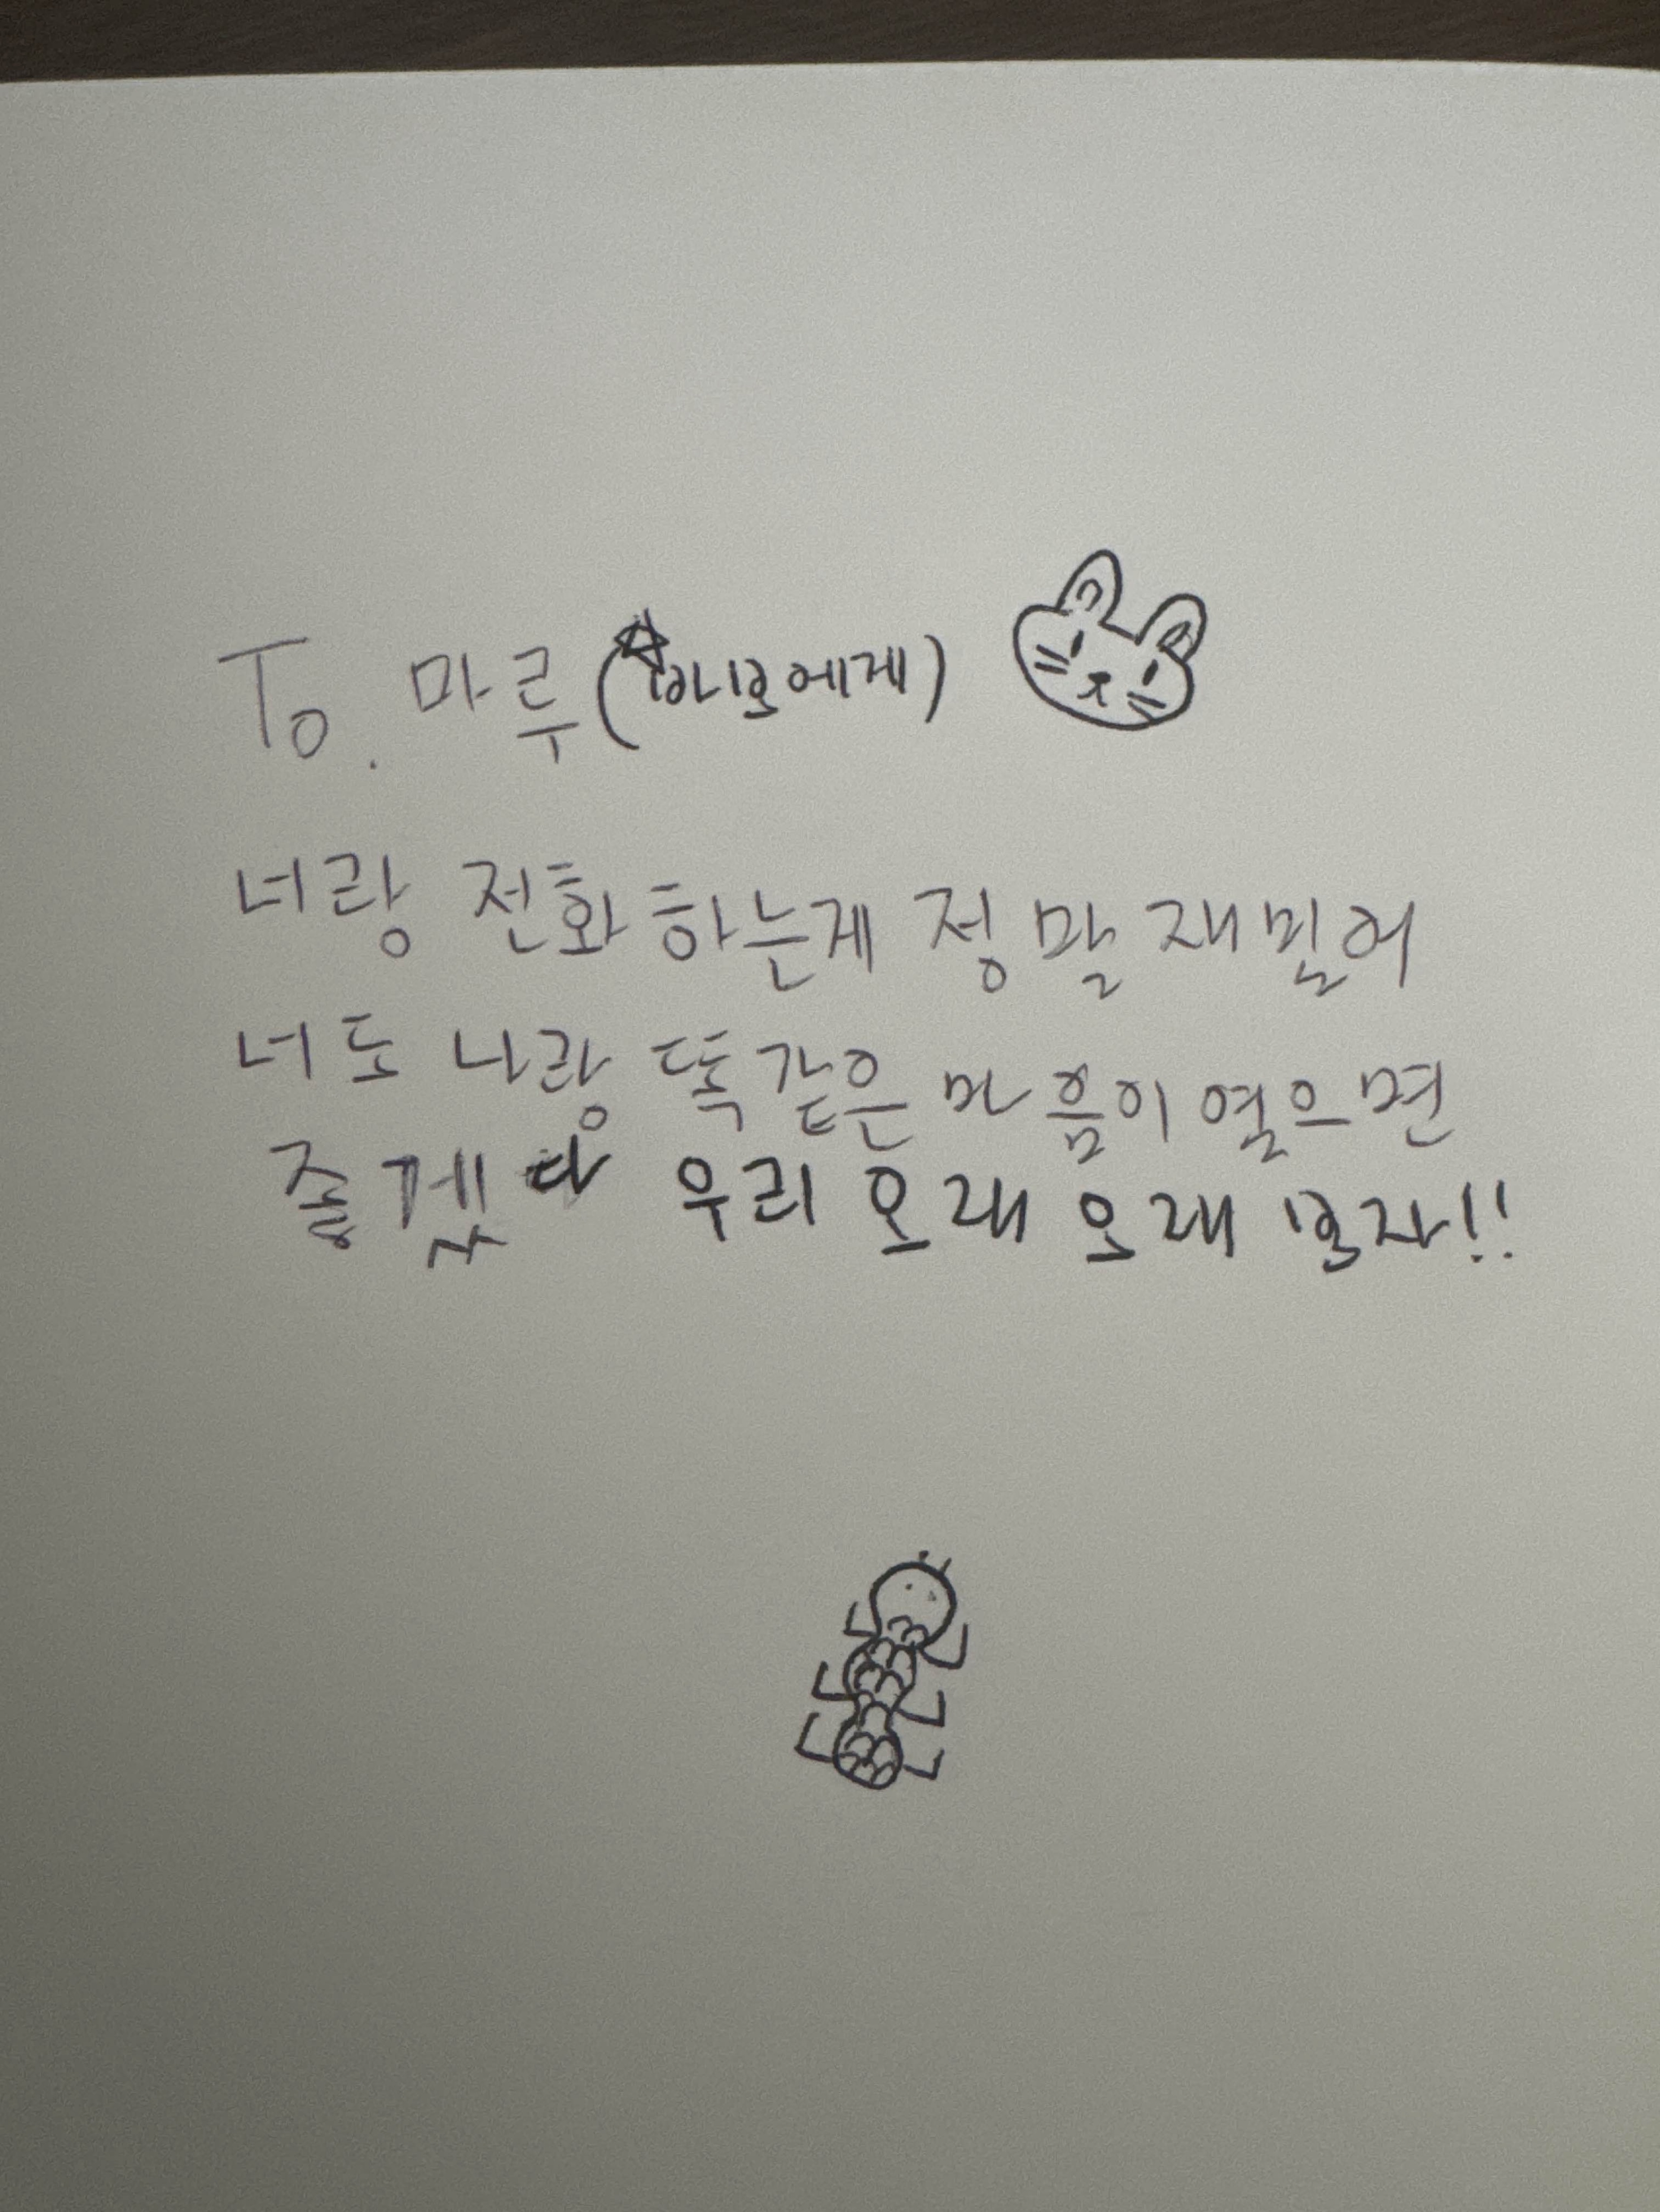 To. 마루 (바보에게)
너랑 전화하는게 정말 재밌어
너도 나랑 똑같은 마음이였으면
좋겠다 우리 오래 오래 보자!!